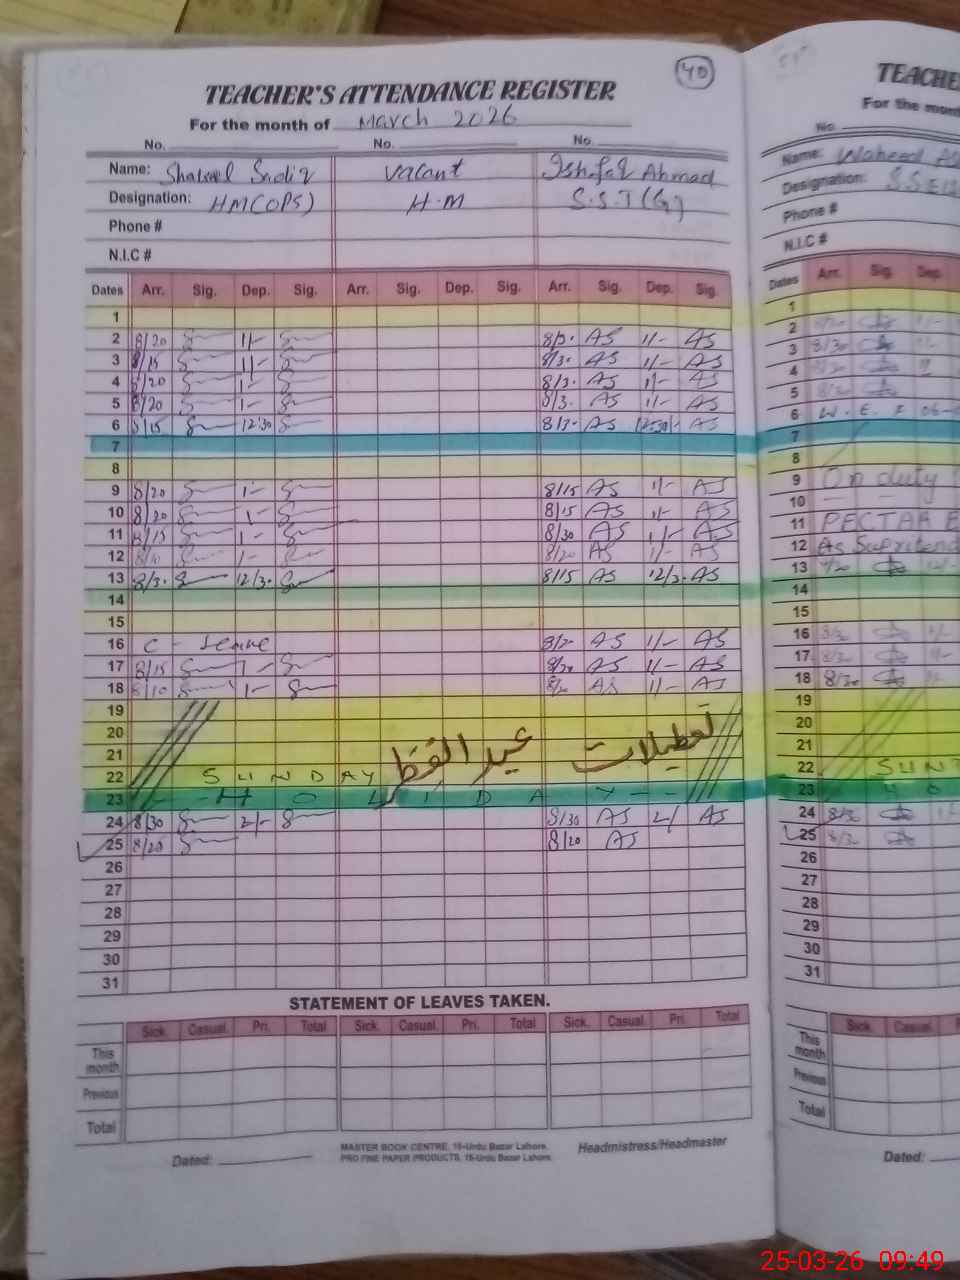 40
TEACHER'S ATTENDANCE REGISTER
For the month of March 2026
No. No. No.
Name: Sadiq Vacant Ishfaq Ahmad
Designation: HM(OPS) H.M S.S.T(G)
Phone #
N.I.C #
Dates Arr. Sig. Dep. Sig. Arr. Sig. Dep. Sig. Arr. Sig. Dep. Sig.
1
2 8/20 1/- 8/3. AS 1/- AS
3 8/15 1/- 8/3. AS 1/- AS
4 8/20 1- 8/3. AS 1/- AS
5 8/20 1- 8/3. AS 1/- AS
6 8/15 12:30 8/3. AS 12:30/- AS
7
8
9 8/20 1- 8/15 AS 1/- AS
10 8/20 1- 8/15 AS 1/- AS
11 8/15 1- 8/30 AS 1/- AS
12 8/10 1- 8/20 AS 1/- AS
13 8/3. 12/3. 8/15 AS 12/3. AS
14
15
16 C - Leave 8/2 AS 1/- AS
17 8/15 1- 8/20 AS 1/- AS
18 8/10 1- 8/20 AS 1/- AS
19
20 تعطیلات عید الفطر
21
22 SUNDAY
23 HOLIDAY
24 8/30 2/- 8/30 AS 2/ AS
25 8/20 8/20 AS
26
27
28
29
30
31
STATEMENT OF LEAVES TAKEN.
Sick. Casual. Pri. Total Sick. Casual. Pri. Total Sick. Casual. Pri. Total
This month
Previous
Total
Dated:
MASTER BOOK CENTRE, 16-Urdu Bazar Lahore.
PRO FINE PAPER PRODUCTS, 16-Urdu Bazar Lahore.
Headmistress/Headmaster
TEACHE
For the mon
No.
Name: Waheed
Designation:
Phone #
N.I.C #
Dates Arr. Sig. Dep.
1
2
3 8/30
4
5
6 W.E.F 06-
7
8
9 On duty
10
11 PECTAA
12 As
13
14
15
16
17
18 8/30
19
20
21
22 SUN
23 HO
24 8/30
25 8/30
26
27
28
29
30
31
Sick. Casual.
This month
Previous
Total
Dated:
25-03-26 09:49